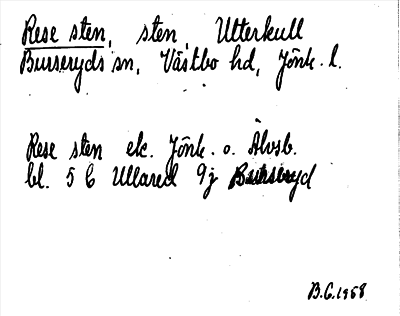 Rese sten, sten, Utterkull
Burseryds sn, Västbo hd, Jönk. l.
Rese sten ek. Jönk. o. Älvsb.
bl. 5 C Ullared 9j Burseryd
B.G. 1968